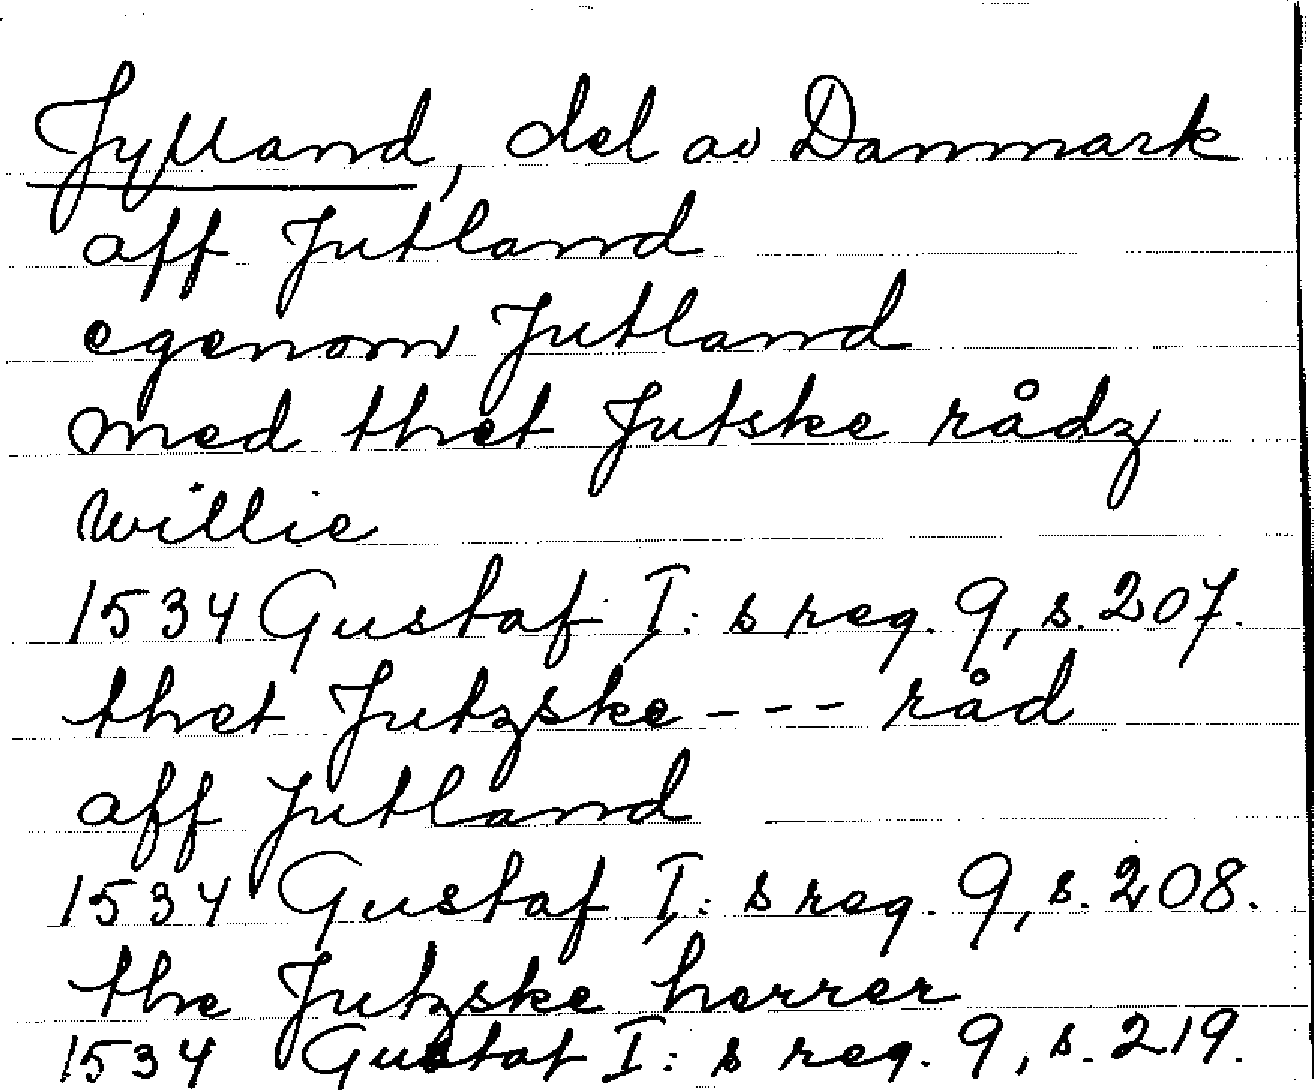 Jylland, del av Danmark
aff Jutland
egenom Jutland
med thet Jutske rådz
willie
1534 Gustaf I:s reg. 9, s. 207.
thet Jutzske --- råd
aff Jutland
1534 Gustaf I:s reg. 9, s. 208.
the Jutzske herrer
1534 Gustaf I:s reg. 9, s. 219.